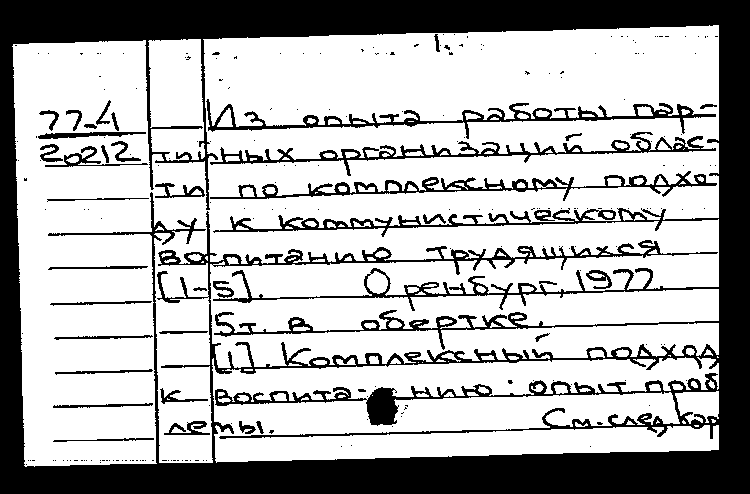 1.
77-4 Из опыта работы пар-
20212 тийных организаций облас-
ти по комплексному подхо-
ду к коммунистическому
воспитанию трудящихся
[1-5]. Оренбург, 1977.
5т. в обертке.
[1]. Комплексный подход
к воспита-нию: опыт проб
лемы.
См. след. кар